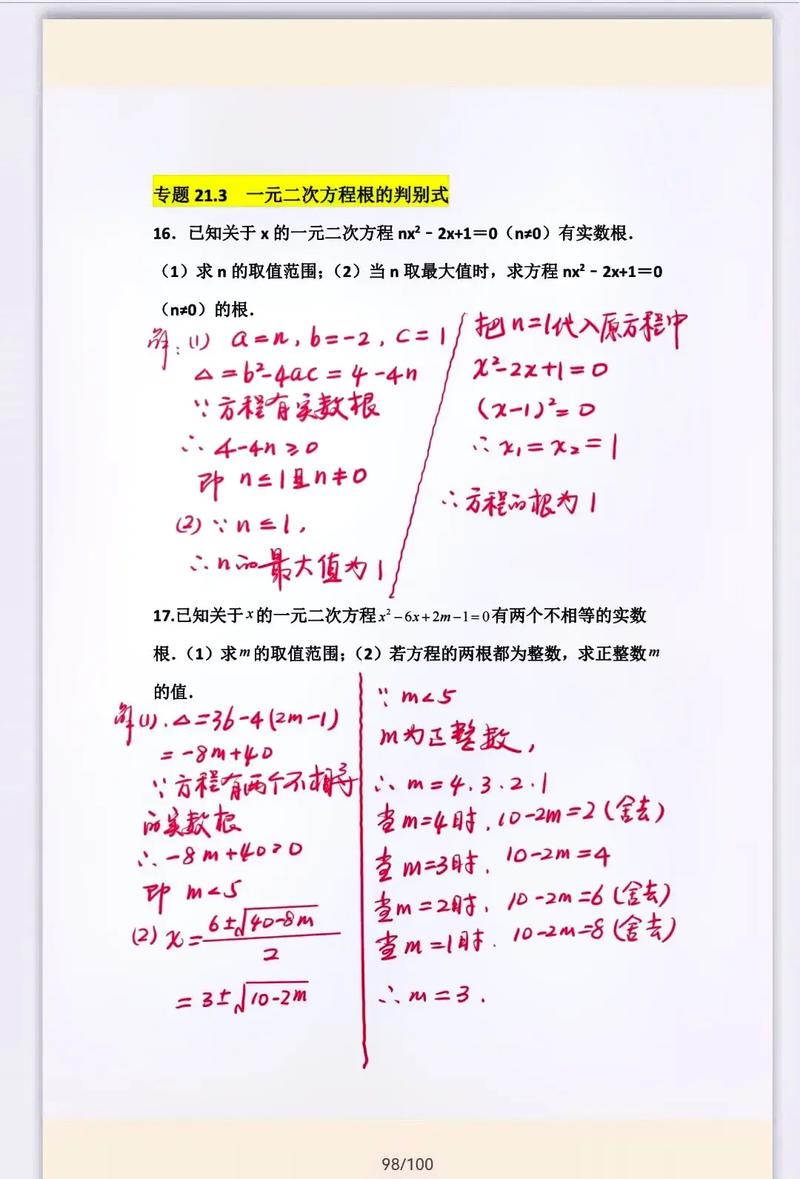 专题 21.3 一元二次方程根的判别式
16．已知关于 x 的一元二次方程 nx²﹣2x+1＝0（n≠0）有实数根．
（1）求 n 的取值范围；（2）当 n 取最大值时，求方程 nx²﹣2x+1＝0
（n≠0）的根．
解：(1) a=n, b=-2, c=1
△=b²-4ac=4-4n
∵方程有实数根
∴4-4n≥0
即 n≤1且n≠0
(2) ∵n≤1,
∴n的最大值为1
把n=1代入原方程中
x²-2x+1=0
(x-1)²=0
∴x₁=x₂=1
∴方程的根为1
17.已知关于x的一元二次方程x²-6x+2m-1=0有两个不相等的实数
根．（1）求m的取值范围；（2）若方程的两根都为整数，求正整数m
的值．
解(1).△=36-4(2m-1)
=-8m+40
∵方程有两个不相等
的实数根
∴-8m+40>0
即 m<5
(2) x=6±√40-8m/2
=3±√10-2m
∵m<5
m为正整数,
∴m=4.3.2.1
当m=4时,10-2m=2(舍去)
当m=3时.10-2m=4
当m=2时,10-2m=6(舍去)
当m=1时.10-2m=8(舍去)
∴m=3.
98/100